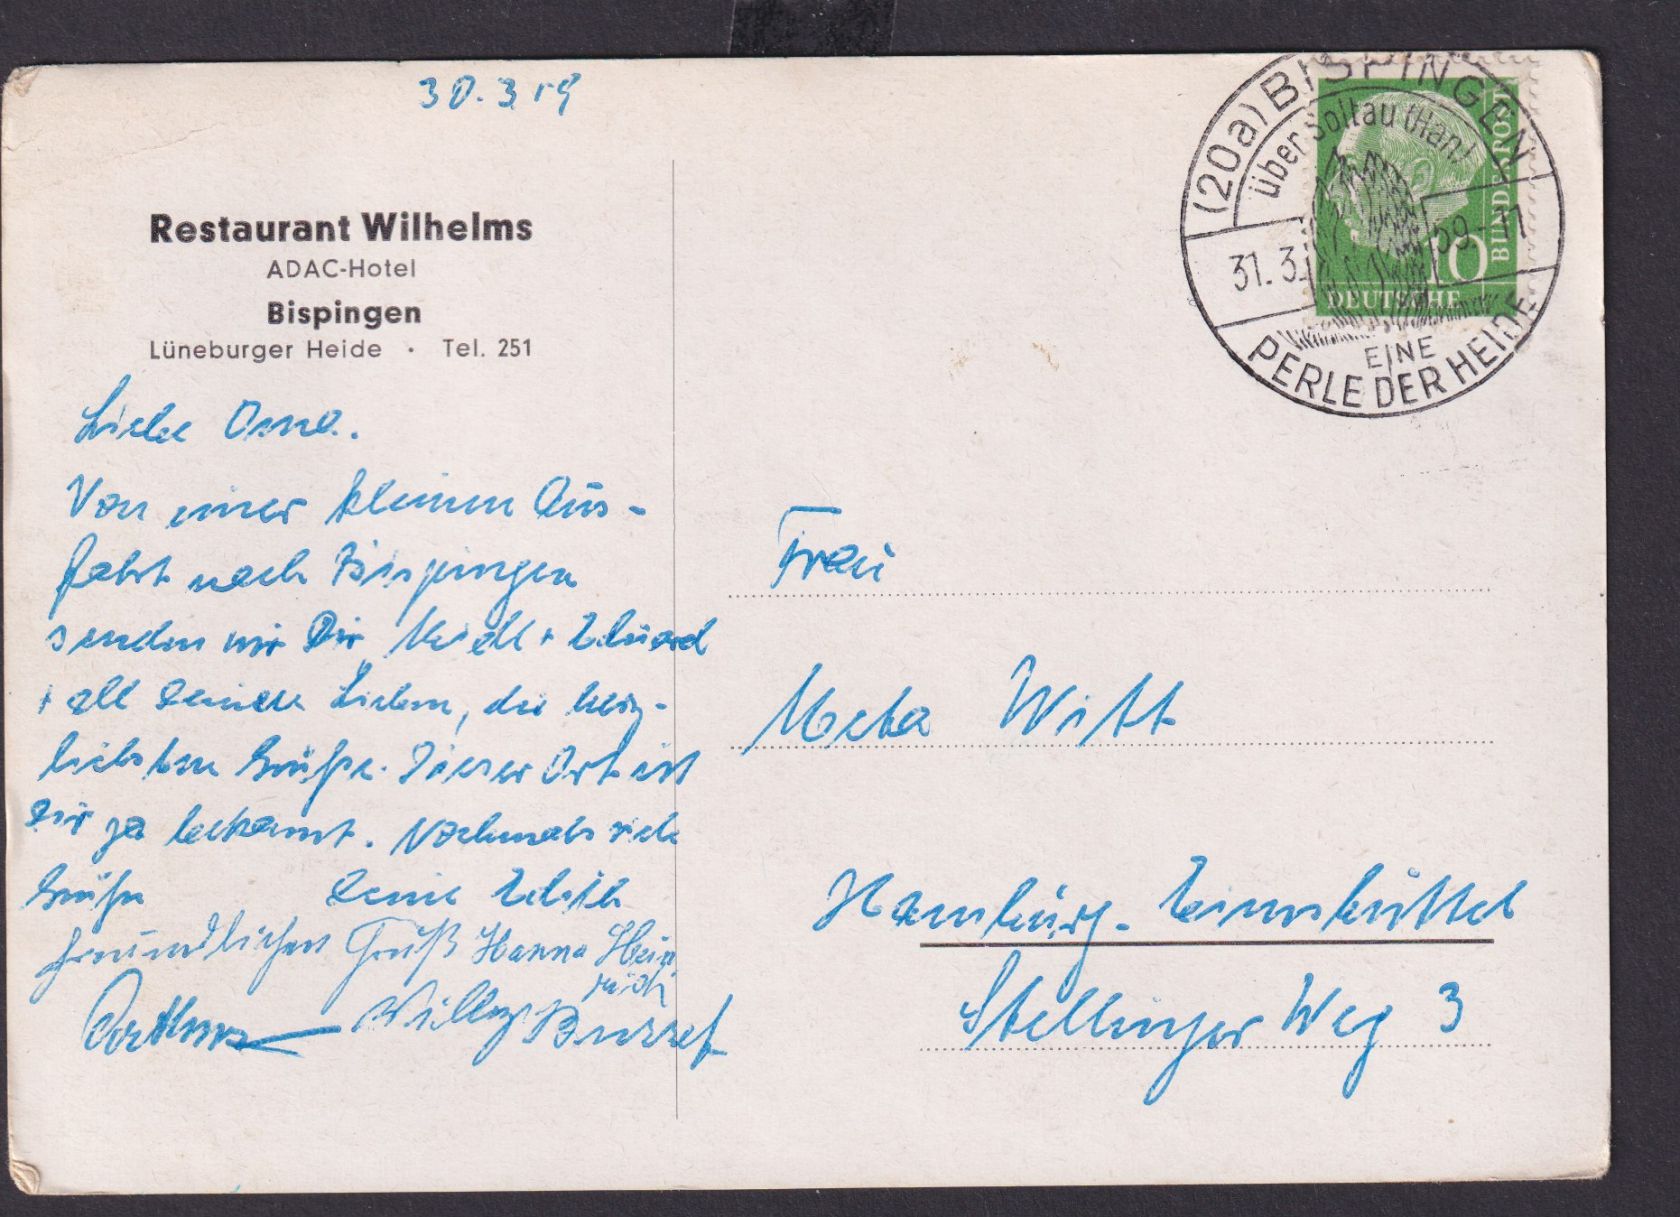 30.3.59
Restaurant Wilhelms
ADAC-Hotel
Bispingen
Lüneburger Heide · Tel. 251
Liebe Oma.
Von einer kleinen Aus-
fahrt nach Bispingen
senden wir Dir, + Eduard
+ all Deinen Lieben, die herz-
lichsten Grüße. Dieser Ort ist
Dir ja bekannt. Nochmals viele
Grüße Deine Edith
freundlichen Gruß Hanna Hein
rich
Willy
(20a) BISPINGEN
über Soltau (Han)
31.3. 59-17
EINE
PERLE DER HEIDE
10
DEUTSCHE
BUNDESPOST
Frau
Meta Witt
Hamburg-Eimsbüttel
Stellinger Weg 3